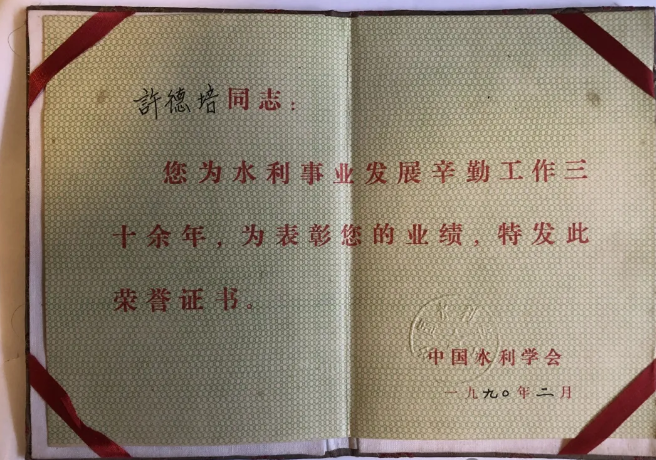 許德培同志：
您为水利事业发展辛勤工作三
十余年，为表彰您的业绩，特发此
荣誉证书。
中国水利学会
一九九〇年二月